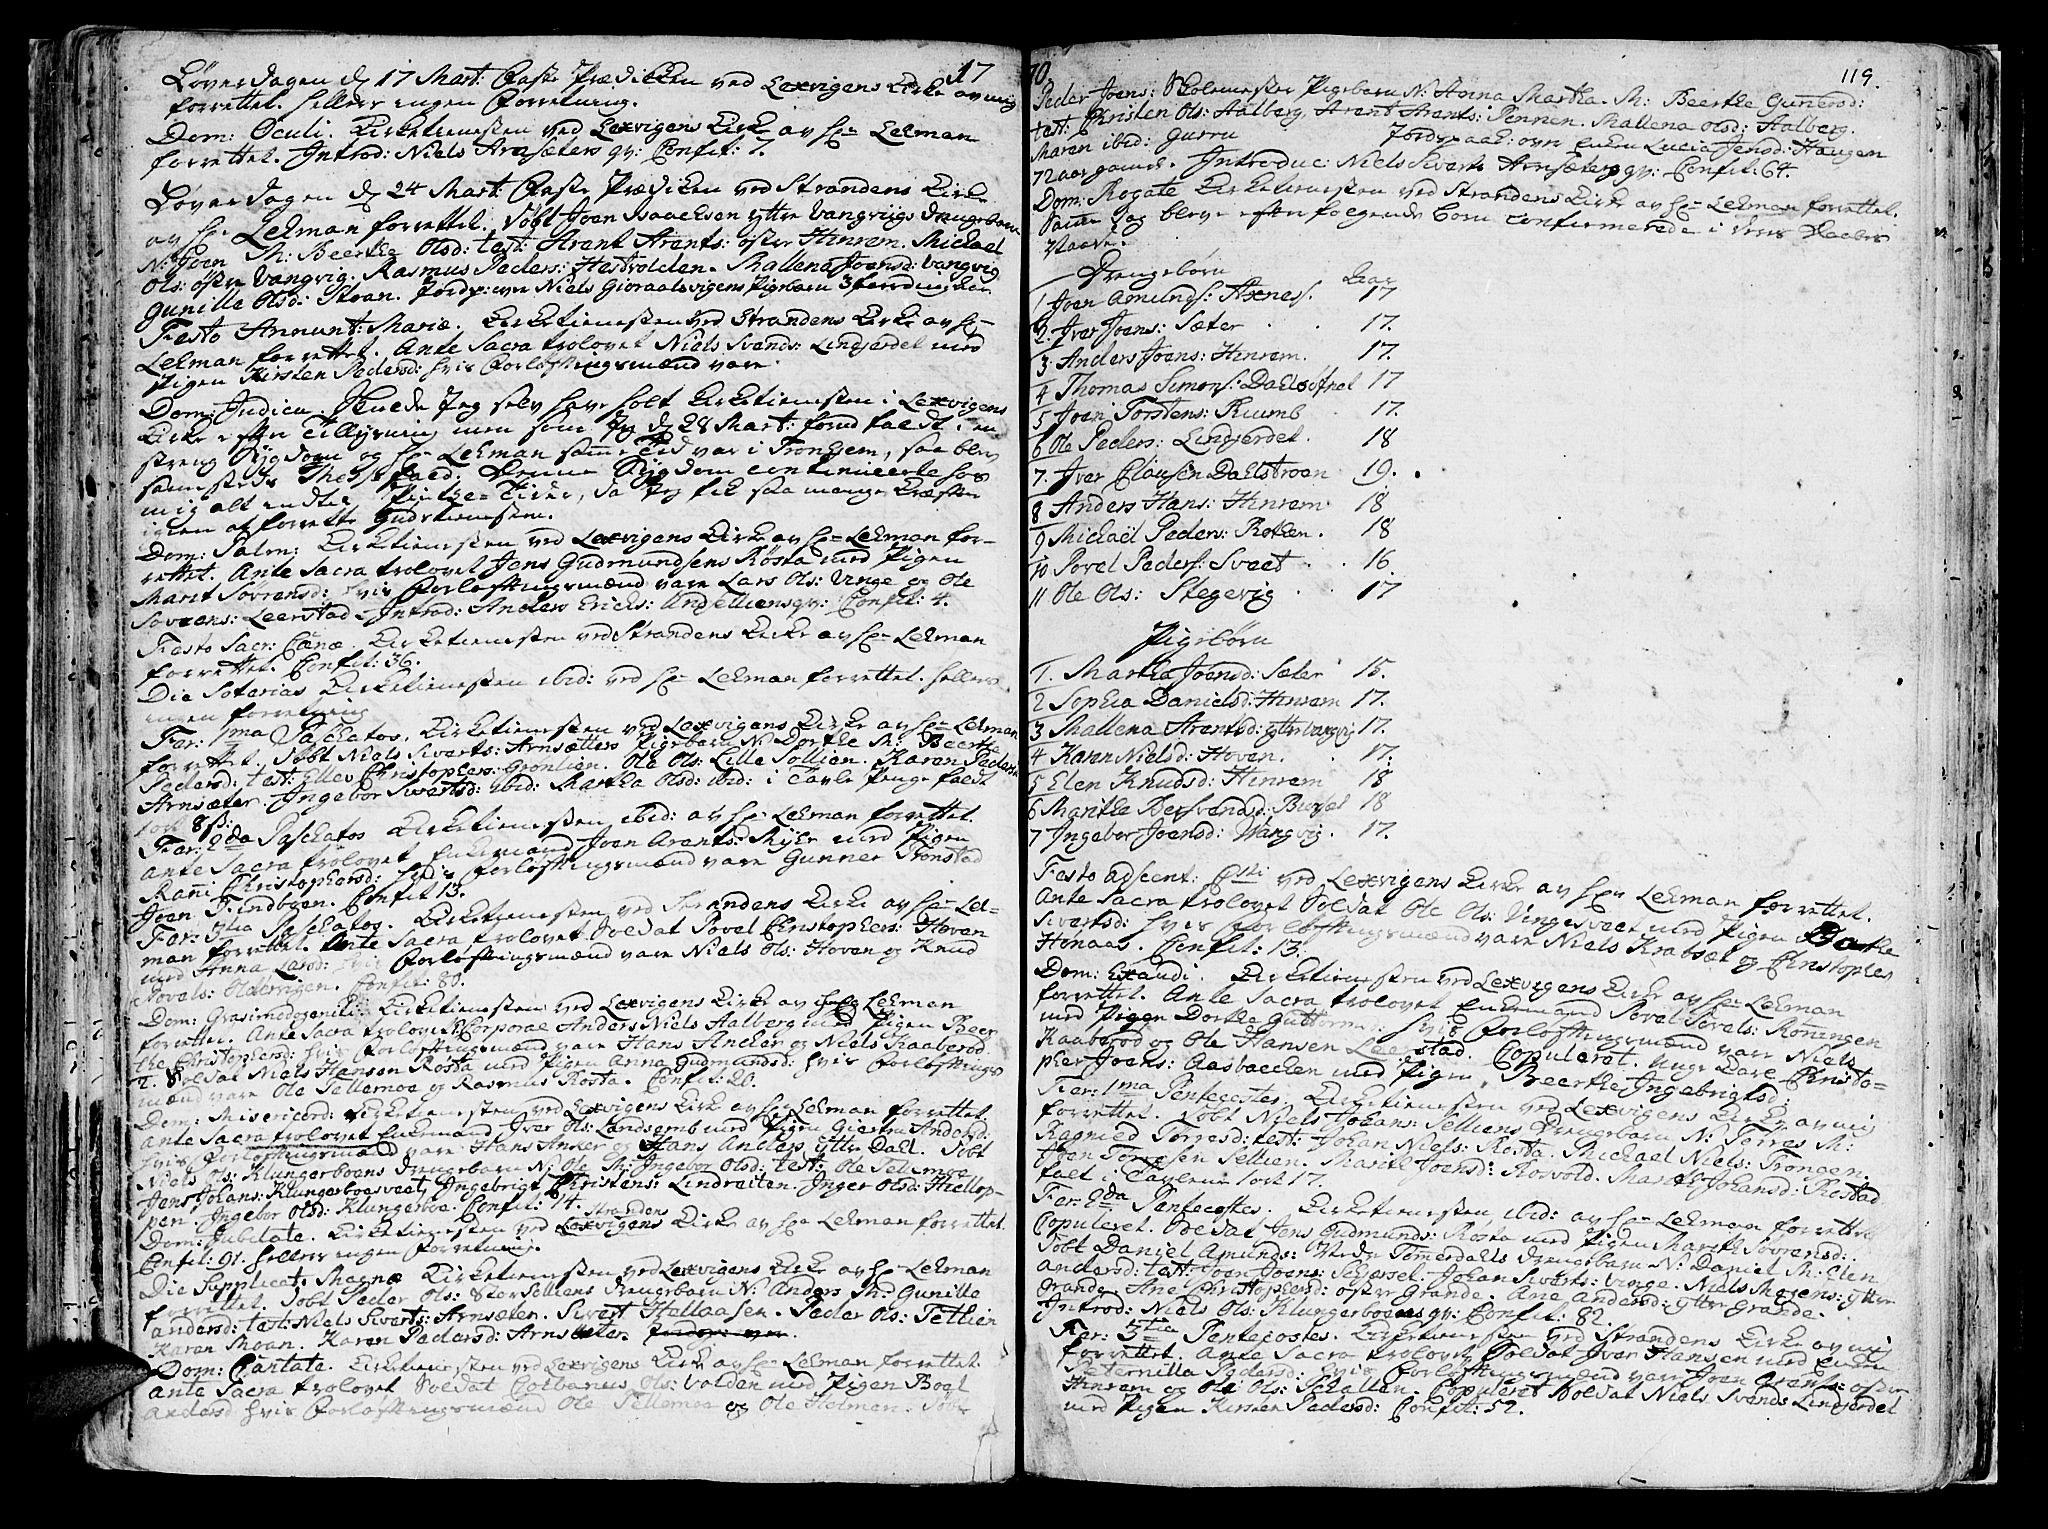 17
Løverdagen d 17 Mart: Faste Prædicken ved Lexvigens Kirke av mig
forrettet. hellers ingen Forretning.
Dom: Oculi. Kirketienesten ved Lexvigens Kirke av Hr Lekman
forrettet. Introd: Niels Arnsæters qv: Confit: 7.
Løverdagen d 24 Mart: Faste Prædiken ved Strandens Kirke
av Hr Lekman forrettet. Døbt Joen Isaacksen yttre Vangviigs drengebarn
N: Joen M: Beerthe Olsd: test: Arent Arents: øster Hinrem. Michael
Ols: østre Vangvig. Rasmus Peders: Hestvolden. Mallena Joensd: Vangvig
Gunille Olsd: Stoan. Jordp: over Niels Pigebarn 3 ferdingaar
Festo Annunt: Mariæ. Kirketienesten ved Strandens Kirke av Hr
Lekman forrettet. Ante Sacra trolovet Niels Svends: Lindjerdet med
Pigen Kirsten Pedersd: hvis Forløftningsmænd vare
Dom: Judica. Skulde Jeg selv have holt Kirketienesten i Lexvigens
Kirke efter Tillysning men som Jeg d 28 Mart: forud faldt i en
streng Sygdom og Hr Lekman samme Tid var i Tronhiem, saa blev
samesteds Denne Sygdom continueerte hos
mig alt indtil Pintze-Tider, da Jeg fik saa mange Kræfter
igien at forrette Gudstienesten.
Dom: Palm: Kirketienesten ved Lexvigens Kirke av Hr Lekman for-
rettet. Ante Sacra trolovet Jens Gudmundsens Røsta med Pigen
Marit Sørrensd: hvis Forløftningsmænd vare Lars Ols: Vinge og Ole
Sørrens: Leerstad. Introd: Anders Ericks: qv: Confit: 4.
Festo Sacr: Cænæ. Kirketienesten ved Strandens Kirke av Hr Lekman
forrettet. Confit: 36.
Die Soterias Kirketienesten ibid: ved Hr Lekman forrettet. hellers
ingen forretning
Fer: 1ma Paschatos. Kirketienesten ved Lexvigens Kirke av Hr Lekman
forrettet. Døbt Niels Siverts: Arnsætters Pigebarn N: Dorthe M: Beerthe
Pedersd: test: Ellev Christophers: Grønlien. Ole Ols: Lille Sollien. Karen Pedersd
Arnsæter. Ingebor Sivertsd: ibid: Martha Olsd: ibid: i Tavle Penge faldt
1 ort 8 s:
Fer: 2da Paschatos Kirketienesten ibid: av Hr Lekman forrettet.
Ante Sacra trolovet Enkemand Joen Arents: Myhr med Pigen
Rañi Christophersd: hvis Forløftningsmænd vare Gunner Tronstad
Joen Findboen. Confit 13.
Fer: 3tia Paschatos. Kirketienesten ved Strandens Kirke av Hr Lek-
man forrettet. Ante Sacra trolovet Soldat Povel Christophers: Hoven
med Anna Larsd: hvis Forløftningsmænd vare Niels Ols: Hoven og Knud
Povels: Oldervigen. Confit: 80.
Dom: Qvasimodogeniti: Kirketienesten ved Lexvigens Kirke av Hr Lekman
forrettet. Ante Sacra trolovet Corporal Anders Niels Aalberg med Pigen Beer-
the Christophersd: hvis Forløftningsmænd vare Hans Ancker og Niels Kaaberød.
2. Soldat Niels Hansen Røsta med Pigen Anna Gudmundsd: hvis Forløftnings
mænd vare Ole Tellemoe og Rasmus Rosta. Confit: 20.
Dom: Misericord: Kirketienesten ved Lexvigens Kirke av Hr Lekman forrettet.
Ante Sacra trolovet Enkemand Iver Ols: Landsemb med Pigen Giertru Andersd:
hvis Forløftningsmænd vare Hans Ancker og Hans Anders yttre Dahl. Døbt
Niels Ols: Klungerboens drengebarn N: Ole M: Ingebor Olsd: test: Ole Tellmoe
Jens Johans: Klungerboesveet, Ingebrigt Christens: Lindreiten. Inger Olsd: Hiellop-
pen. Ingebor Olsd: Klungerboe. Confit: 14.
Strandens
Dom: Jubilate. Kirketienesten ved Lexvigens Kirke av Hr Lekman forrettet.
Confit: 91. hellers ingen Forretning.
Die Supplicat: Magnæ Kirketienesten ved Lexvigens Kirke av Hr Lekman
forrettet. Døbt Peder Ols: Stor Selliens drengebarn N: Anders M: Gunille
Andersd: test: Niels Siverts: Arnsæter. Sivert Hellaasen. Peder Ols: Tettlien
Karen Moan. Karen Pedersd: Arnsæter. Jordp: over.
Dom: Cantate. Kirketienesten ved Lexvigens Kirke av Hr Lekman forrettet.
Ante Sacra trolovet Soldat Colbanus Ols: Valden med Pigen Boel
Andersd hvis Forløftningsmænd Ole Tellemoe og Ole Holman. Døbt
70.
119.
Peder Joens: Skolemester Pigebarn N: Anna Martha. M: Beerthe Gunersd:
test: Christen Ols: Aalberg, Arent Arents: Pennen. Mallena Olsd: Aalberg.
Maren ibid: Gurru Jordspaad: over Enken Lucia Jensd: Haugen
72 aar gamel. Introduc: Niels Siverts Arnsæters qv: Confit: 64.
Dom: Rogate Kirketienesten ved Strandens Kirke av Hr Lekman forrettet.
Samme Dag bleve efterfølgende Børn confirmerede i deres Daabes
Naade.
Drengebørn Aar
1 Joen Amunds: Axnes. 17
2. Iver Joens: Sæter 17.
3. Anders Joens: Hinrem. 17.
4 Thomas Simons: Dahlsstrøl 17
5 Joen Torstens: Riumb 17.
6 Ole Peders: Lindjerdet. 18
7. Iver Clausen Dalstroen 19.
8 Anders Hans: Hinrem 18
9 Michael Peders: Rotken. 18
10 Povel Peders: Sveet 16.
11 Ole Ols: Stegevig 17
Pigebørn
1. Martha Joensd: Sæter 15.
2 Sophia Danielsd: Hinrem 17.
3 Mallena Arentsd: yttre vangvig 17.
4 Karen Nielsd: Hoven. 17.
5 Elen Knudsd: Hinrem 18
6 Marithe Bersvendsd: Bursel 18
7 Ingebor Joensd: Wangvig. 17.
Festo adscent: Csti ved Lexvigens Kirke av Hr Lekman forrettet.
Ante Sacra trolovet Soldat Ole Ols: Vingesveet med Pigen Berthe
Sivertsd: hvis Forløftningsmænd vare Niels Krabsæt og Christopher
Hønaas. Confit: 13.
Dom: Exaudi. Kirketienesten ved Lexvigens Kirke av Hr Lekman
forrettet. Ante Sacra trolovet Enkemand Povel Povels: Rönningen
med Pigen Dorthe Guttorms: hvis Forløftningsmænd vare Niels
Kaaberød og Ole Hansen Leerstad. Copuleret. Unge Karl Christo-
pher Joens: Aasbacken med Pigen Beerthe Ingebrigtsd:
Fer: 1ma Pentecostes. Kirketienesten ved Lexvigens Kirke av mig
forrettet. Døbt Niels Johans: Selliens Drengebarn N: Torres M:
Ragnild Torresd: test: Johan Niels: Rosta. Michael Niels: Trongen.
Joen Torresen Sellien. Marithe Joensd: Rosvold. Marith Johansd: Rostad
falt i Tavlen 1 ort 17.
Fer: 2da Pentecostes. Kirketienesten, ibid: av Hr Lekman forrettet
Copuleret. Soldat Jens Gudmunds: Rosta med Pigen Marithe Sørrensd:
Døbt Daniel Amunds: Tømerdahls drengebarn N: Daniel M: Elen
Andersd: test: Joen Joens: Schjessel. Johan Siverts: Vinge. Niels Mogens: yttre
Grande. Ane Christophersd: øster Grande. Ane Andersd: yttre Grande.
Introd: Niels Ols: Klungerboens qv: Confit: 82.
Fer: 3tia Pentecostes. Kirketienesten ved Strandens Kirke av mig
forrettet. Ante Sacra trolovet Soldat Iver Hansen med Enken
Peternilla Pedersd: hvis Forløftningsmænd vare Joen Arents: øster
Hinrem og Ole Ols: Schallen. Copuleret Soldat Niels Svends Lindjerdet
med Pigen Kirsten Pedersd: Confit: 52.